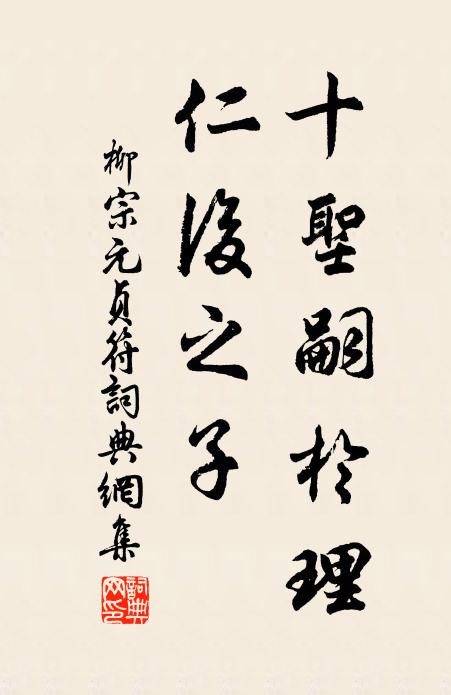 十聖嗣於理
仁後之子
柳宗元貞符詞典網集
詞典
网印